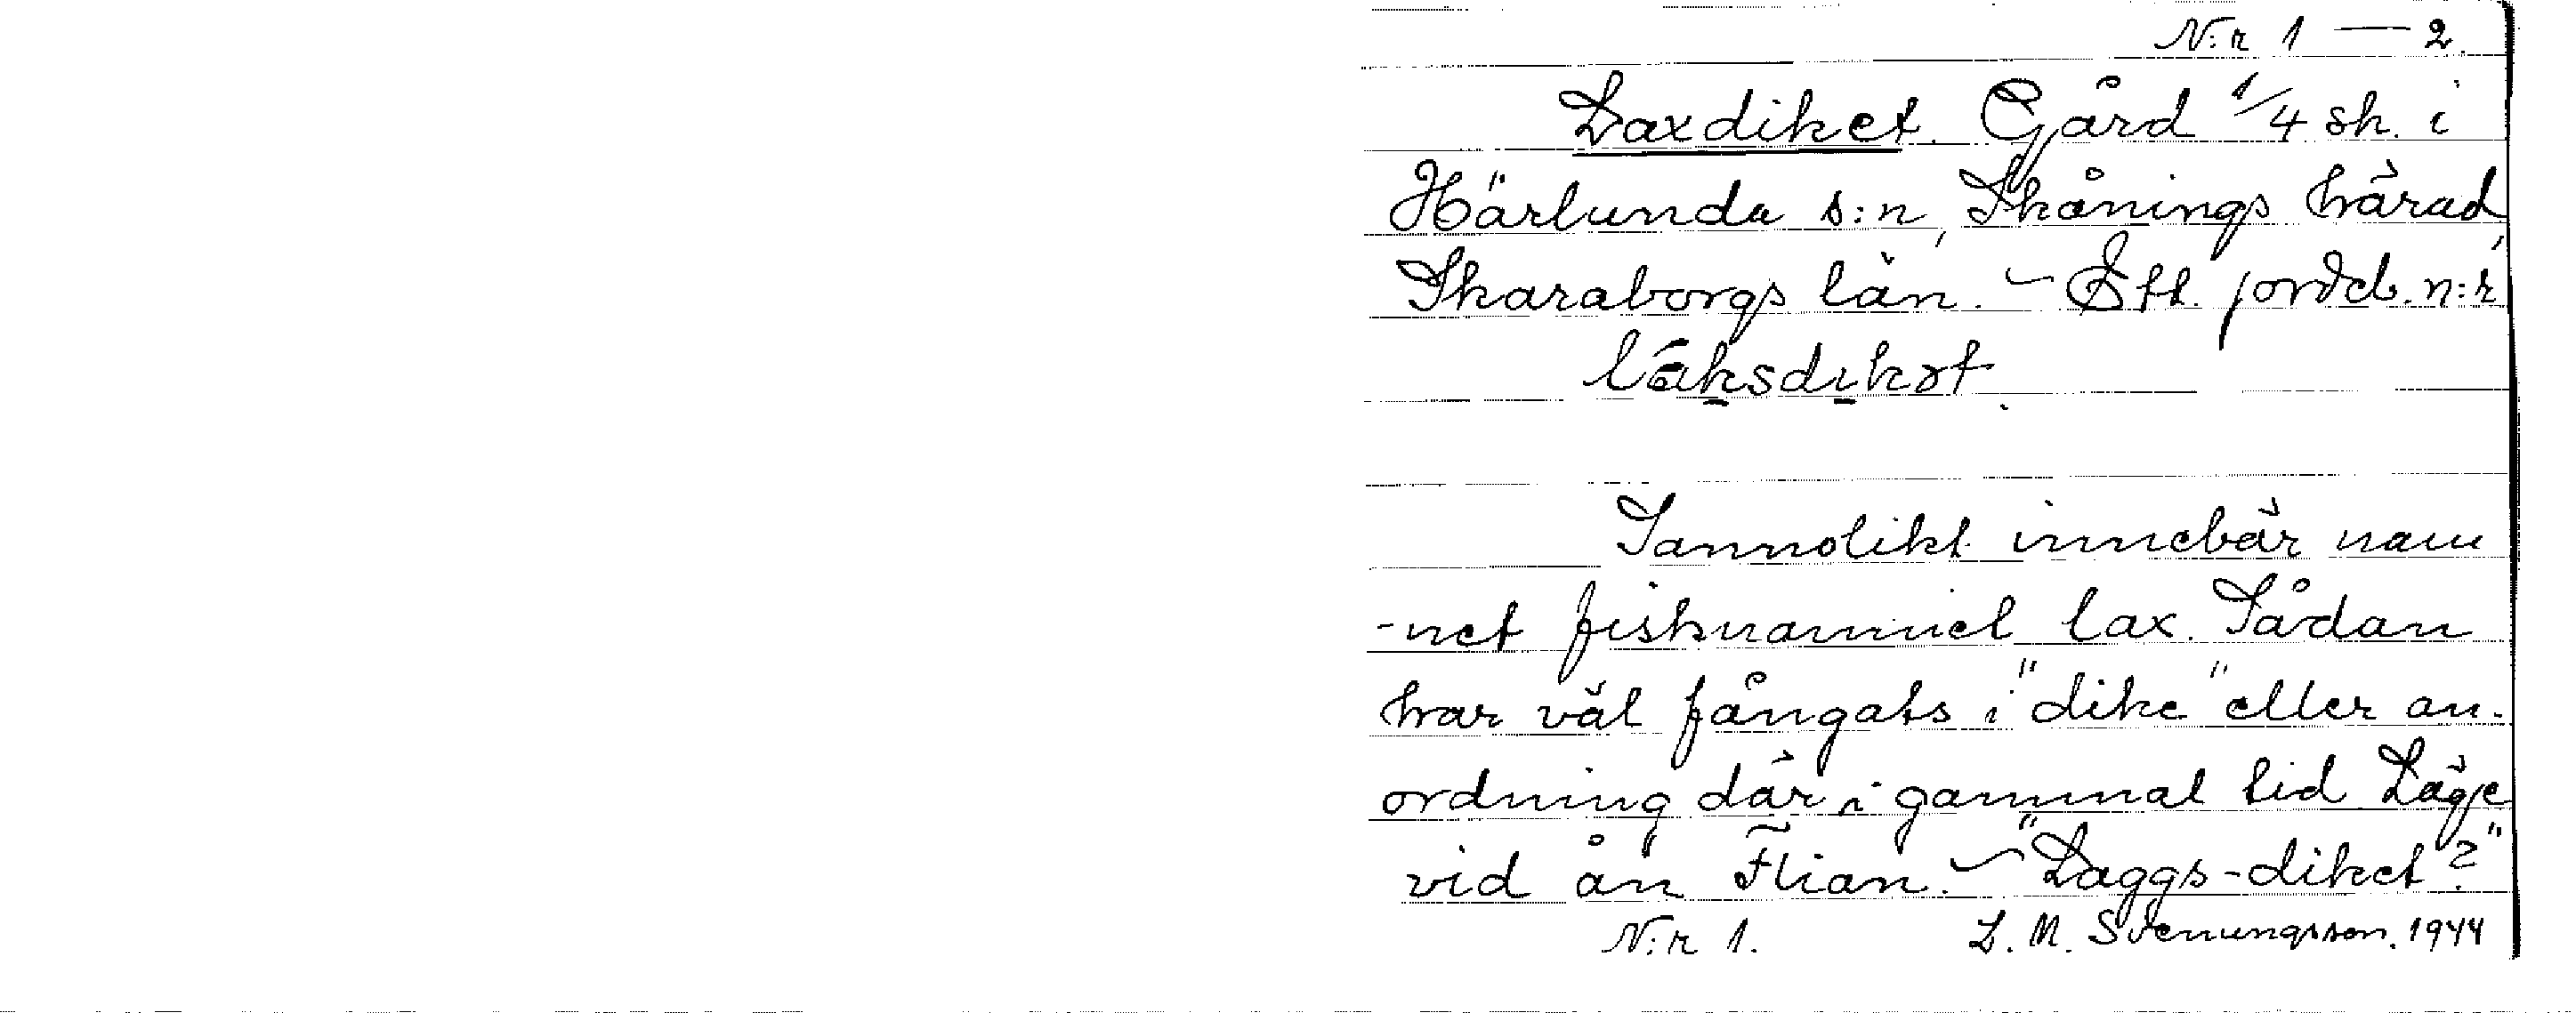 N:r 1 — 2.
Laxdiket. Gård 1/4 sk. i
Härlunda s:n, Skånings härad,
Skaraborgs län. – Ett. jordeb. n:r
låksdikət.
Sannolikt innebär nam
-net fisknamnet lax. Sådan
har väl fångats i "dike" eller an-
ordning där i gammal tid. Läge
vid ån Flian. – "Laggs-diket?"
N:r 1. L. M. Svenungsson. 1944